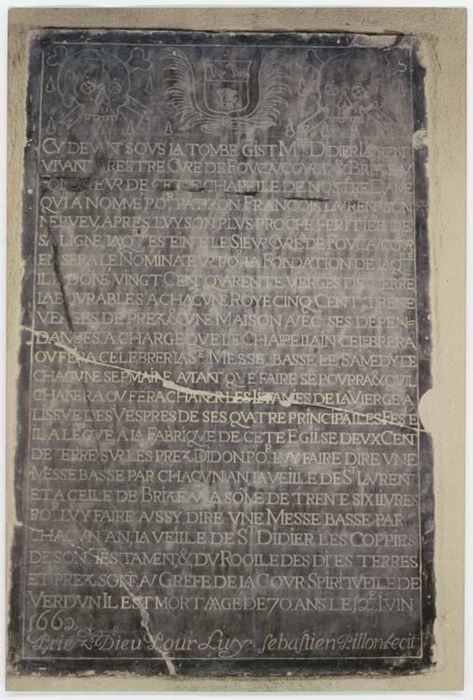 CY DEVANT SOVS LA TOMBE GIST Mre DIDIER LAVRENT
VIVANT PRESTRE CVRE DE FOVCAVCOVRT & BRIZEAV
FONDATEVR DE CETTE CHAPELLE DE NOSTRE DAME
QVI A NOMME POr PATRON FRANCOIS LAVRENT SON
NEPVEV, APRES LVY SON PLVS PROCHE HERITIER DE
SA LIGNE, LAQle ESTEINTE LE SIEVR CVRE DE FOVCAVCOVRT
EN SERA LE NOMINATEVR POr LA FONDATION DE LAQlle
IL A DONE VINGT CENT QVARENTE VERGES DE TERRE
LABOVRABLES A CHACVNE ROYE CINQ CENT TRENTE
VERGES DE PREZ & VNE MAISON AVEC SES DEPEN-
DANCES, A CHARGE QVE LE CHAPELLAIN CELEBRERA
OV FERA CELEBRER LA Ste MESSE BASSE LE SAMEDY DE
CHACVNE SEPMAINE AVTANT QVE FAIRE SE POVRRA & QVIL
CHANTERA OV FERA CHANTER LES LITANIES DE LA VIERGE A
LISSVE DES VESPRES DE SES QVATRE PRINCIPALLES FESTES
IL A LEGVE A LA FABRIQVE DE CETTE EGLISE DEVX CENT
DE TERRE SVR LES PREZ DIDON POr LVY FAIRE DIRE VNE
MESSE BASSE PAR CHACVN AN LA VEILLE DE St LAVRENT
ET A CELLE DE BRIZEAV LA SOME DE TRENTE SIX LIVRES
POr LVY FAIRE AVSSY DIRE VNE MESSE BASSE PAR
CHACVN AN LA VEILLE DE St DIDIER LES COPPIES
DE SON TESTAMENT & DV ROOLLE DES DITES TERRES
ET PREZ SONT AV GREFE DE LA COVR SPIRITVELLE DE
VERDVN IL EST MORT AAGE DE 70 ANS LE IVIN
1662
Priez Dieu Pour Luy. Sebastien Pillon fecit